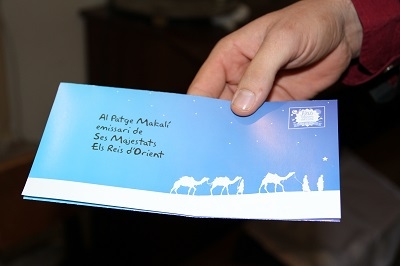 Al Patge Makalí
emissari de
Ses Majestats
Els Reis d'Orient